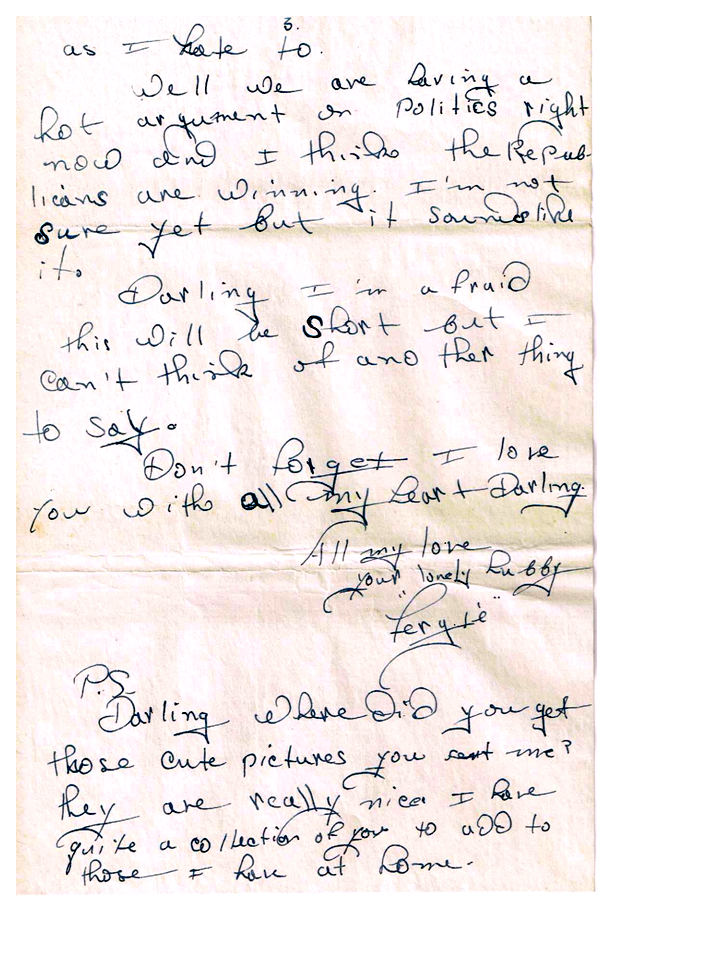 3.
as I hate to.
Well we are having a
hot argument on Politics right
now and I think the Repub-
licans are winning. I'm not
sure yet but it sounds like
it.
Darling I'm afraid
this will be short but I
can't think of another thing
to say.
Don't forget I love
you with all my heart Darling.
All my love
your lonely hubby
"Fergie"
P.S.
Darling where did you get
those cute pictures you sent me?
they are really nice I have
quite a collection of you to add to
those I have at home.